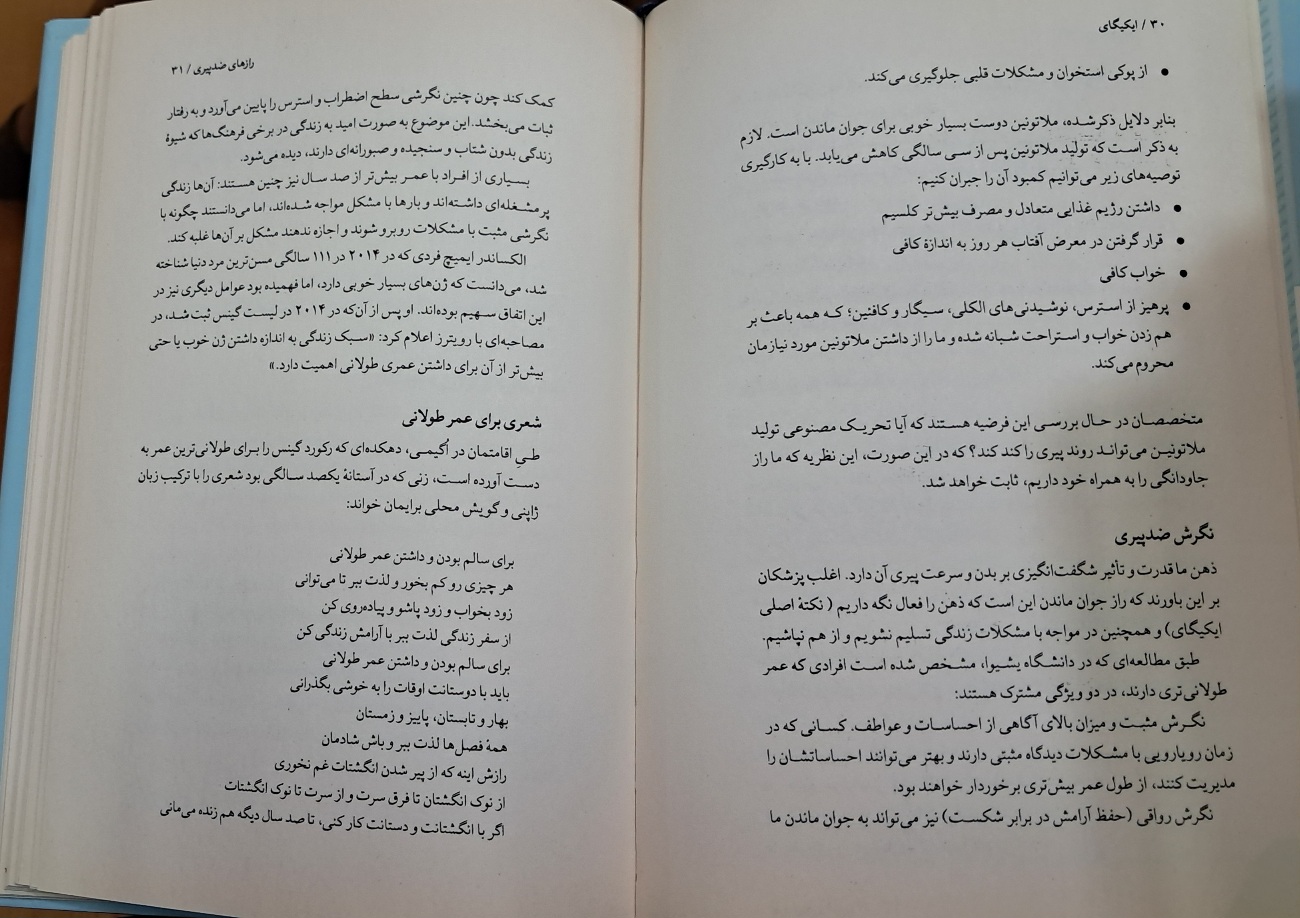 ۳۰ / ایکیگای
● از پوکی استخوان و مشکلات قلبی جلوگیری می‌کند.
بنابر دلایل ذکرشده، ملاتونین دوست بسیار خوبی برای جوان ماندن است. لازم
به ذکر است که تولید ملاتونین پس از سی سالگی کاهش می‌یابد. با به کارگیری
توصیه‌های زیر می‌توانیم کمبود آن را جبران کنیم:
● داشتن رژیم غذایی متعادل و مصرف بیش‌تر کلسیم
● قرار گرفتن در معرض آفتاب هر روز به اندازهٔ کافی
● خواب کافی
● پرهیز از استرس، نوشیدنی‌های الکلی، سیگار و کافئین؛ که همه باعث بر
هم زدن خواب و استراحت شبانه شده و ما را از داشتن ملاتونین مورد نیازمان
محروم می‌کند.
متخصصان در حال بررسی این فرضیه هستند که آیا تحریک مصنوعی تولید
ملاتونین می‌تواند روند پیری را کند کند؟ که در این صورت، این نظریه که ما راز
جاودانگی را به همراه خود داریم، ثابت خواهد شد.
نگرش ضدپیری
ذهن ما قدرت و تأثیر شگفت‌انگیزی بر بدن و سرعت پیری آن دارد. اغلب پزشکان
بر این باورند که راز جوان ماندن این است که ذهن را فعال نگه داریم ( نکتهٔ اصلی
ایکیگای) و همچنین در مواجه با مشکلات زندگی تسلیم نشویم و از هم نپاشیم.
طبق مطالعه‌ای که در دانشگاه یشیوا، مشخص شده است افرادی که عمر
طولانی‌تری دارند، در دو ویژگی مشترک هستند:
نگرش مثبت و میزان بالای آگاهی از احساسات و عواطف. کسانی که در
زمان رویارویی با مشکلات دیدگاه مثبتی دارند و بهتر می‌توانند احساساتشان را
مدیریت کنند، از طول عمر بیش‌تری برخوردار خواهند بود.
نگرش رواقی (حفظ آرامش در برابر شکست) نیز می‌تواند به جوان ماندن ما
رازهای ضدپیری / ۳۱
کمک کند چون چنین نگرشی سطح اضطراب و استرس را پایین می‌آورد و به رفتار
ثبات می‌بخشد. این موضوع به صورت امید به زندگی در برخی فرهنگ‌ها که شیوهٔ
زندگی بدون شتاب و سنجیده و صبورانه‌ای دارند، دیده می‌شود.
بسیاری از افراد با عمر بیش‌تر از صد سال نیز چنین هستند: آن‌ها زندگی
پر مشغله‌ای داشته‌اند و بارها با مشکل مواجه شده‌اند، اما می‌دانستند چگونه با
نگرشی مثبت با مشکلات روبرو شوند و اجازه ندهند مشکل بر آن‌ها غلبه کند.
الکساندر ایمیچ فردی که در ۲۰۱۴ در ۱۱۱ سالگی مسن‌ترین مرد دنیا شناخته
شد، می‌دانست که ژن‌های بسیار خوبی دارد، اما فهمیده بود عوامل دیگری نیز در
این اتفاق سهیم بوده‌اند. او پس از آن‌که در ۲۰۱۴ در لیست گینس ثبت شد، در
مصاحبه‌ای با رویترز اعلام کرد: «سبک زندگی به اندازه داشتن ژن خوب یا حتی
بیش‌تر از آن برای داشتن عمری طولانی اهمیت دارد.»
شعری برای عمر طولانی
طیِ اقامتمان در اُگیمی، دهکده‌ای که رکورد گینس را برای طولانی‌ترین عمر به
دست آورده است، زنی که در آستانهٔ یکصد سالگی بود شعری را با ترکیب زبان
ژاپنی و گویش محلی برایمان خواند:
برای سالم بودن و داشتن عمر طولانی
هر چیزی رو کم بخور و لذت ببر تا می‌توانی
زود بخواب و زود پاشو و پیاده‌روی کن
از سفر زندگی لذت ببر با آرامش زندگی کن
برای سالم بودن و داشتن عمر طولانی
باید با دوستانت اوقات را به خوشی بگذرانی
بهار و تابستان، پاییز و زمستان
همهٔ فصل‌ها لذت ببر و باش شادمان
رازش اینه که از پیر شدن انگشتات غم نخوری
از نوک انگشتان تا فرق سرت و از سرت تا نوک انگشتات
اگر با انگشتانت و دستانت کار کنی، تا صد سال دیگه هم زنده می‌مانی